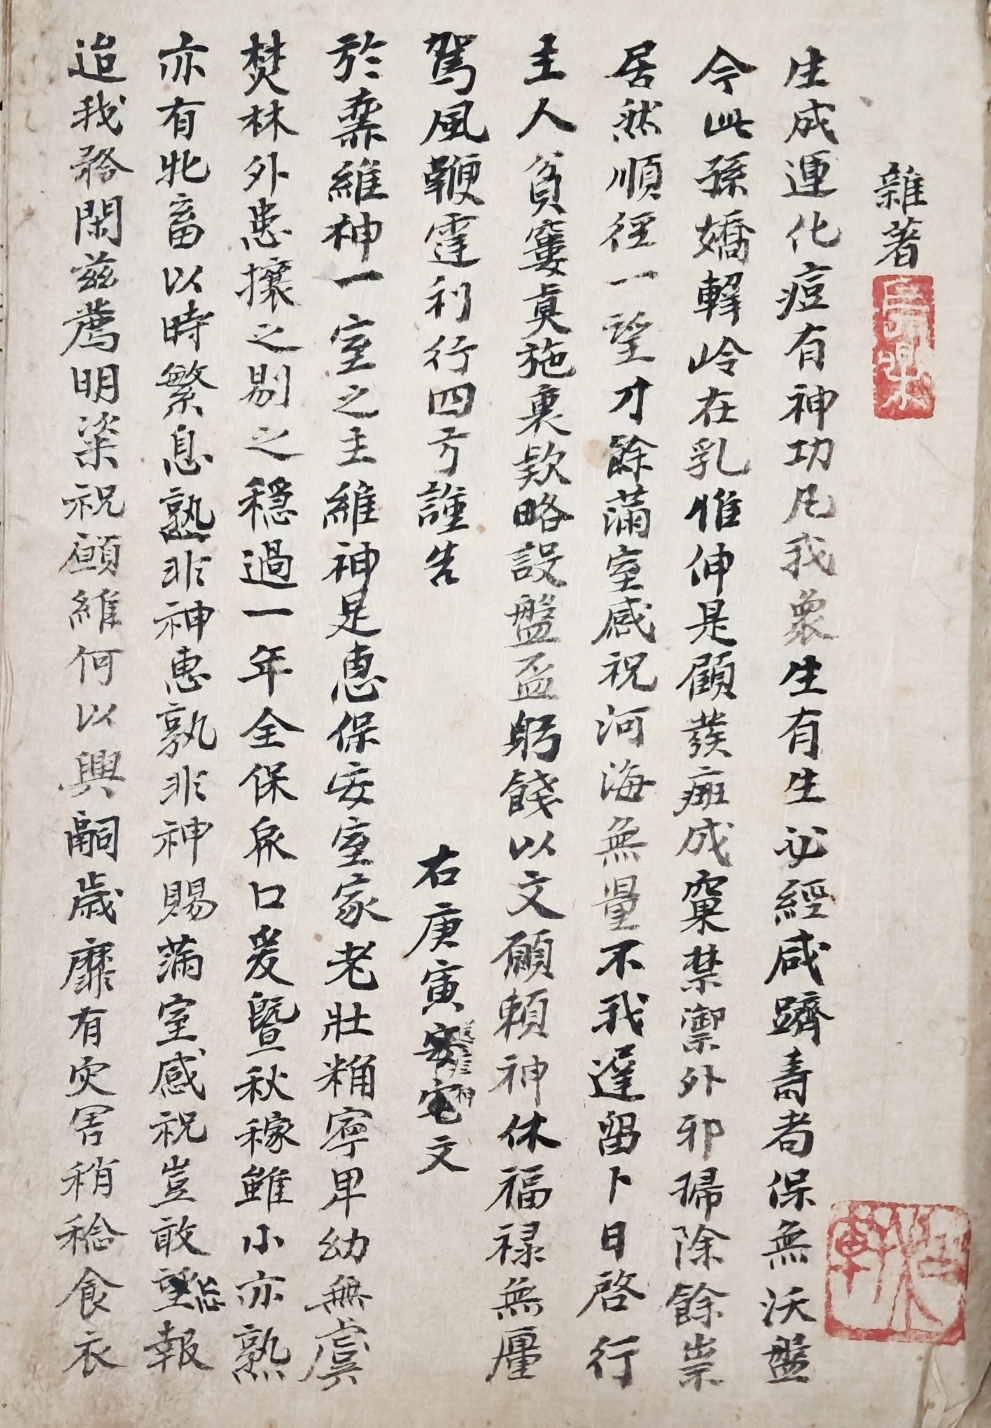 雜著
生成運化痘有神功凡我衆生有生必經咸躋壽耉保無沃盤
今此孫嬌髫岭在乳惟伸是顧發痘成窠禁禦外邪掃除餘祟
居然順經一望才餘滿室感祝河海無量不我遲留卜日啓行
主人貧窶莫施裹欵略設盤盃躬餞以文願賴神休福祿無厘
駕風鞭霆利行四方謹告
右庚寅文
於粢維神一室之主維神是惠保安室家老壯糒寧卑幼無虞
焚林外患攘之剔之穩過一年全保衆口爰曁秋稼雖小亦熟
亦有牝畜以時繁息孰非神惠孰非神賜滿室感祝豈敢忘報
迨我務閑玆薦明粢祝願維何以興嗣歲靡有灾害稍稔食衣